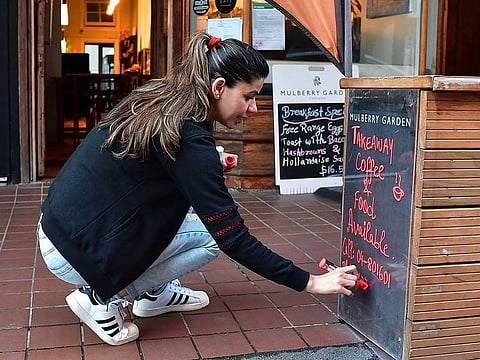 MULBERRY GARDEN
Breakfast Spe
Free Range Eggs
Toast with Baco
Hashbrowns &
Hollandaise Sau
$16.5
MULBERRY GARDEN
TAKEAWAY
Coffee
&
Food
Available